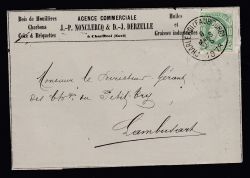 Bois de Houillères
Charbons
Coke & Briquettes
AGENCE COMMERCIALE
J.-P. NONCLERCQ & D.-J. DERZELLE
Huiles
et
Graisses industrielles
Monsieur le Directeur Gérant
des Ch.ges du Petit-Try
Lambusart